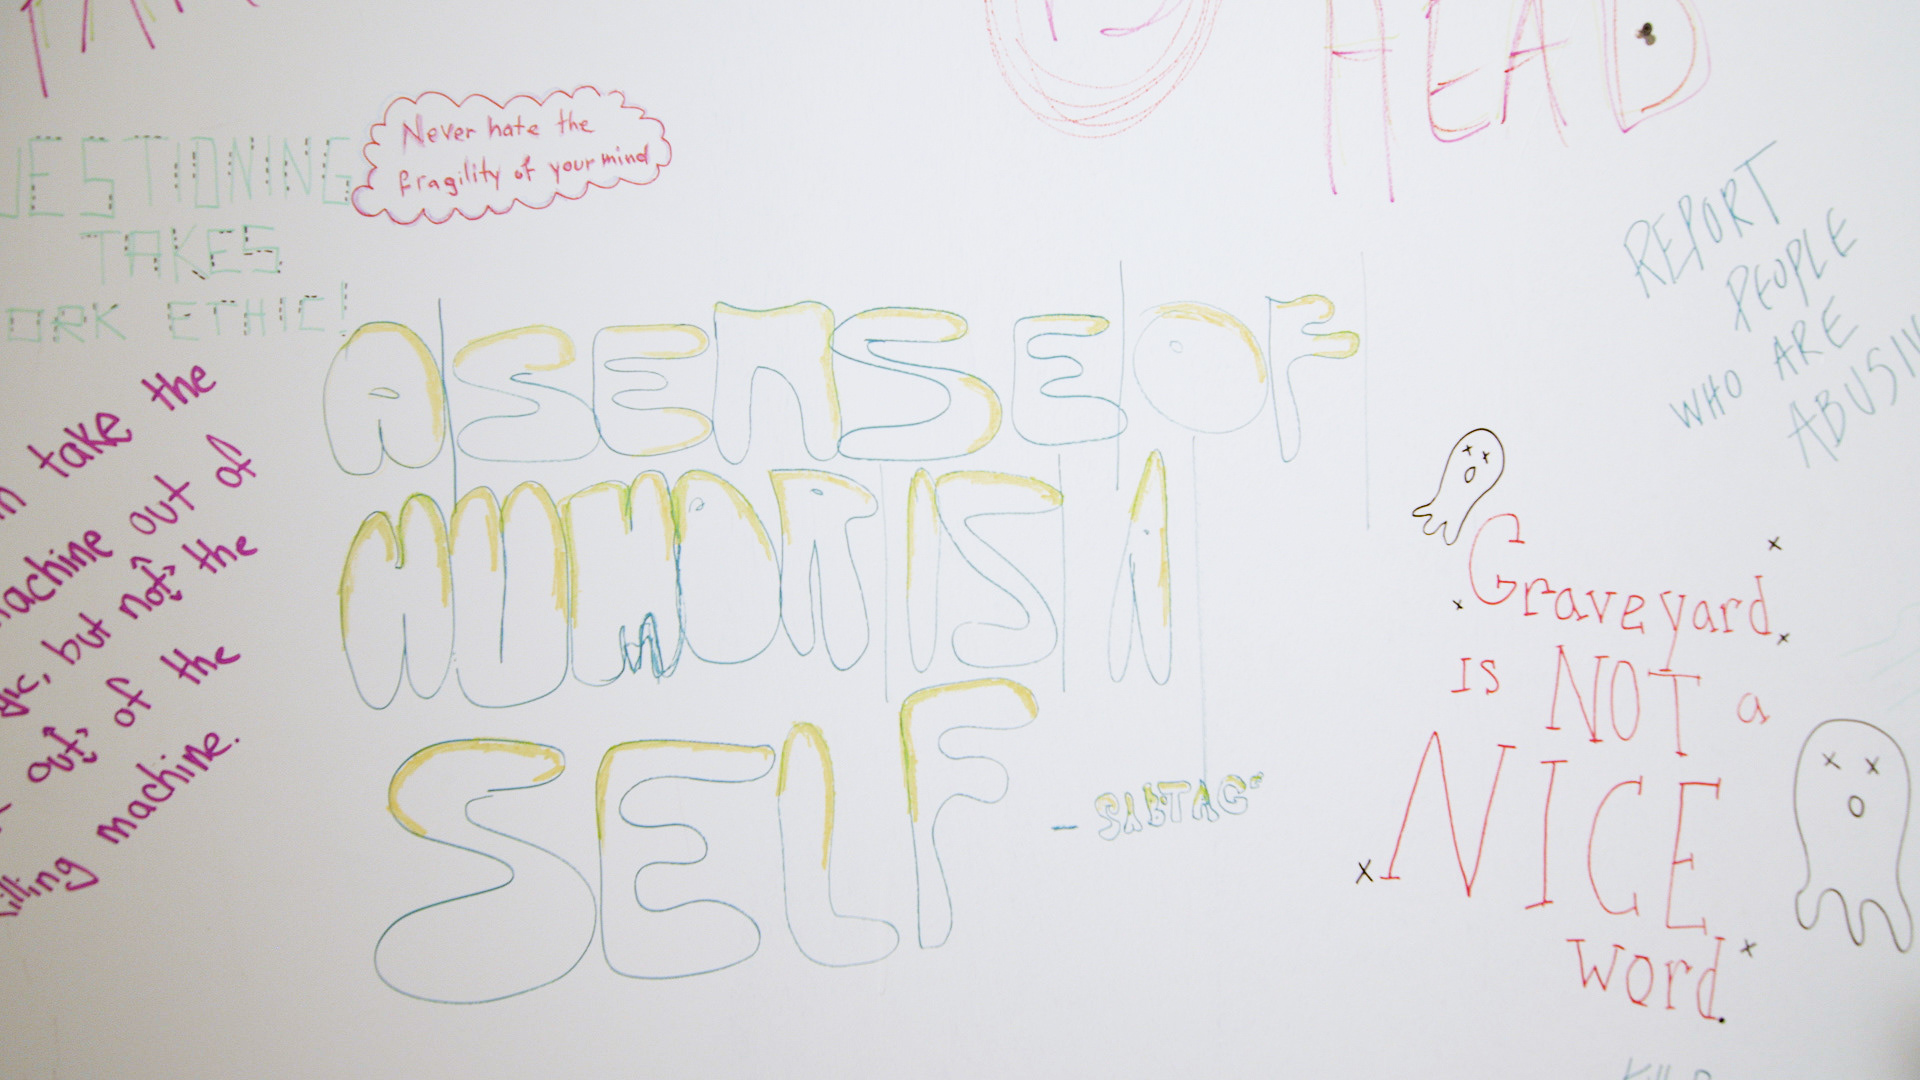 HEAD
Never hate the
fragility of your mind
UESTIONING
TAKES
ORK ETHIC!
take the
achine out of
but not the
out of the
killing machine.
A SENSE OF
HUMOR IS A
SELF
- SABTAG
REPORT
PEOPLE
WHO ARE
ABUSIV
Graveyard
IS NOT a
NICE
word.